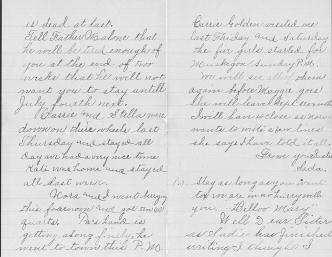 is dead at last.
Tell Father Malone that
he will be tired enough of
you at the end of two
weeks that he will not
want you to stay untill
July fourth next.
Cassie and Stella were
down on their wheels last
Thursday and stayed all
day we had a very nice time
Kate was home and stayed
all last week.
Nora and I went
this forenoon and got two
quarts. Pa's hand is
getting along finely, he
went to town this P.M.
Carrie Golden visited us
last Friday and Saturday
the five girls started for
Muskegon Sunday P.M.
We will see all of them
again before Maggie goes
she will leave
I will have to close as Nora
wants to write a few lines
she says I have told it all.
From your Sister
Sada.
Stay as long as you want
to we are in no hurry with
you. "Hello Mary"
Well Dear Sister
as Sadie has finished
writing I thought I